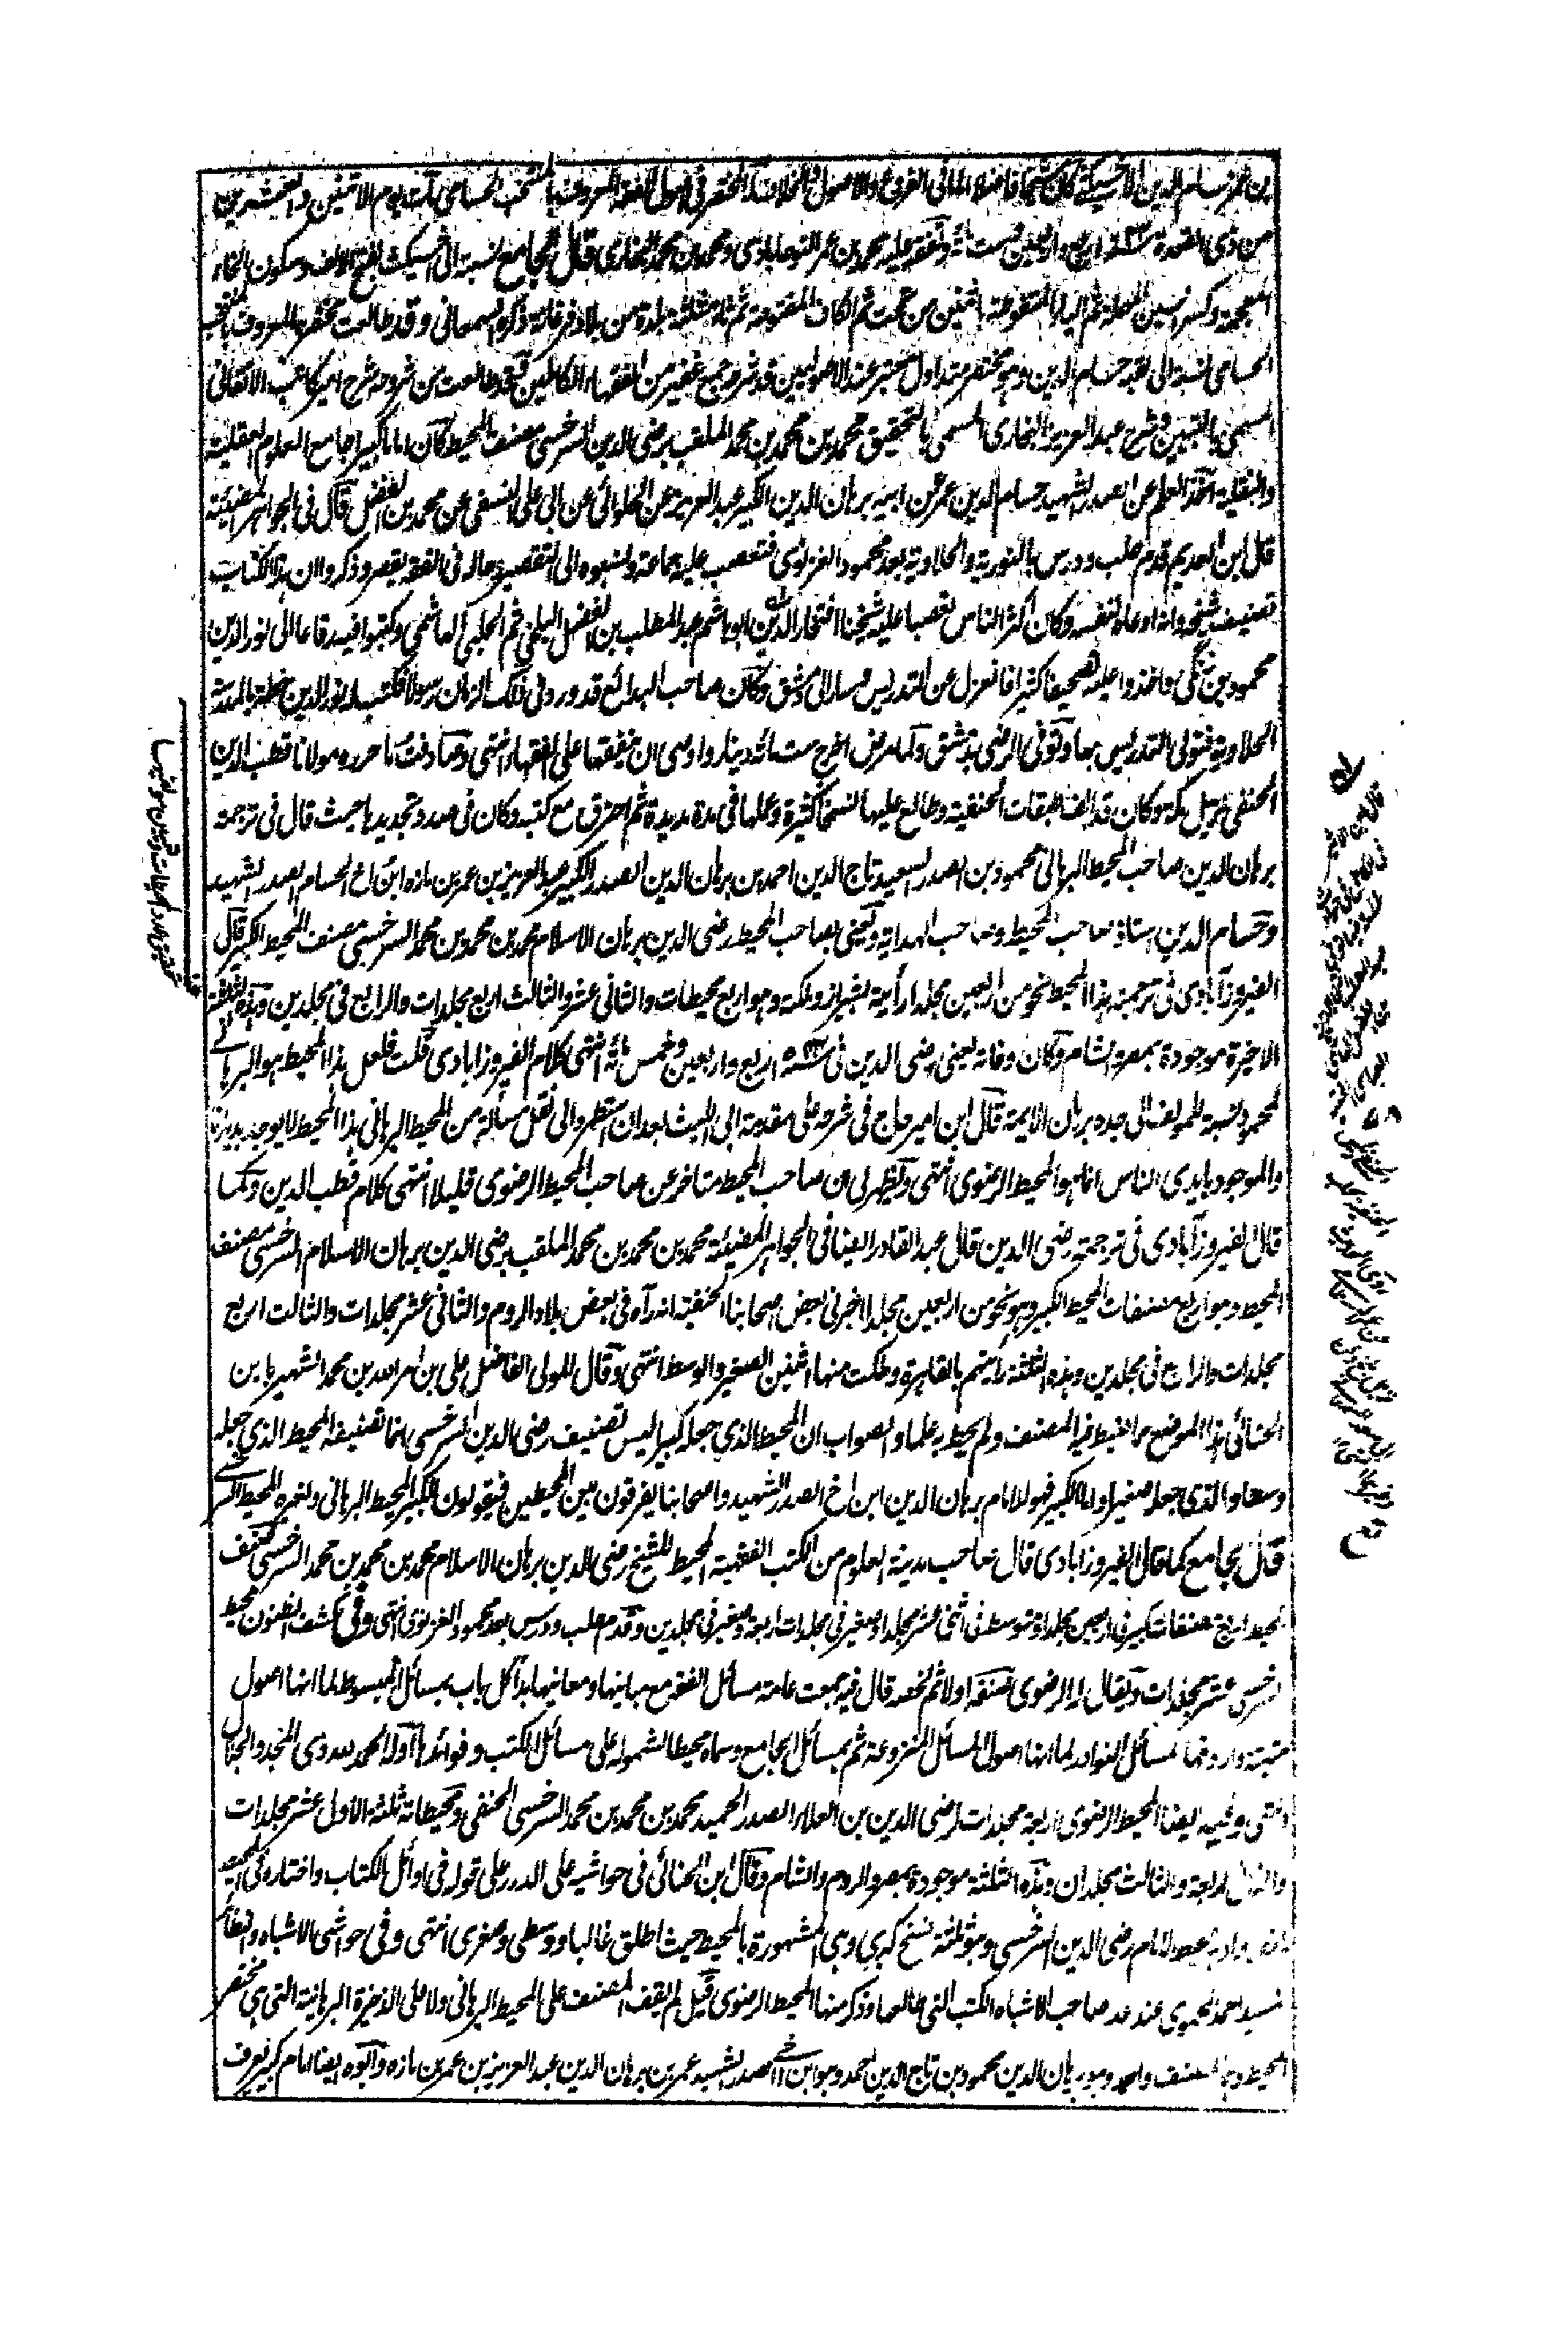 بن عمر حسام الدين الاخسيكثي كان شيخا فاضلا اماما في الفروع والاصول له المختصر في اصول الفقه المعروف بالمنتخب الحسامي مات يوم الاثنين والعشرين
من ذي القعدة سنة اربع واربعين وست مائة وتفقه عليه محمد بن عمر النوجاباذي ومحمد بن محمد البخاري قال الجامع نسبته الى اخسيكث بفتح الالف وسكون الخاء
المعجمة وكسر السين المهملة ثم الياء المنقوطة اثنتين من تحت ثم الكاف المفتوحة ثم ثاء مثلثة بلدة من بلاد فرغانة ذكره السمعاني وقد طالعت مختصره المعروف بالمنتخب
الحسامي نسبة الى لقبه حسام الدين وهو مختصر متداول معتبر عند الاصوليين قد شرحه جمع غفير من الفقهاء الكاملين وقد طالعت من شروحه شرح امير كاتب الاتقاني
المسمى بالتبيين وشرح عبد العزيز البخاري المسمى بالتحقيق محمد بن محمد بن محمد الملقب برضي الدين السرخسي مصنف المحيط كان اماما كبيرا جامع العلوم العقلية
والنقلية اخذ العلم عن الصدر الشهيد حسام الدين عمر عن ابيه برهان الدين الكبير عبد العزيز عن الحلوائي عن ابي علي النسفي عن محمد بن الفضل قال في الجواهر المضيئة
قال ابن العديم قدم حلب ودرس بالنورية والحلاوية بعد محمود الغزنوي فتعصب عليه جماعة ونسبوه الى التقصير وحاله في الفقه يقصر وذكروا ان هذا الكتاب
تصنيف شيخه وانه ادعاه لنفسه وكان اكثر الناس تعصبا عليه شيخنا افتخار الدين ابو هاشم عبد المطلب بن الفضل البلخي ثم الحلبي الهاشمي وكتبوا فيه رقاعا الى نور الدين
محمود بن زنگي واخذوا عليه تصحيفا كثيرا فانعزل عن التدريس وسار الى دمشق وكان صاحب البدائع قد ورد في ذلك الزمان رسولا فكتب له نور الدين خطه بالمدرسة
الحلاوية فتولى التدريس بها وتوفي الرضي بدمشق ولما مرض اخرج ست مائة دينار واوصى ان ينفقها على الفقهاء انتهى وصادفت ما حرره مولانا قطب الدين
الحنفي نزيل مكة وكان قد الف طبقات الحنفية وطالع عليها نسخا كثيرة وعملها في مدة مديدة ثم احترق مع كتبه وكان في صدد تجديدها حيث قال في ترجمة
برهان الدين صاحب المحيط البرهاني محمود بن الصدر السعيد تاج الدين احمد بن برهان الدين الصدر الكبير عبد العزيز بن عمر بن مازه ابن اخ الحسام الصدر الشهيد
وحسام الدين استاذ صاحب المحيط وصاحب الهداية ويعني بصاحب المحيط رضي الدين برهان الاسلام محمد بن محمد بن محمد السرخسي مصنف المحيط الكبير قال
الفيروزآبادي في ترجمته هذا المحيط نحو من اربعين مجلدا رأيته بشيراز وملكته وهو اربع محيطات والثاني عشر والثالث اربع مجلدات والرابع في مجلدين وهذه الثلثة
الاخيرة موجودة بمصر والشام وكان وفاته يعني رضي الدين في سنة اربع واربعين وخمس مائة انتهى كلام الفيروزابادي قلت فلعل هذا المحيط هو البرهاني
لمحمود نسبة المؤلف الى جده برهان الايمة قال ابن امير حاج في شرحه على مقدمة ابي الليث بعد ان استطرد الى نقل مسألة من المحيط البرهاني هذا المحيط لا يوجد بديارنا
والموجود بايدي الناس انما هو المحيط الرضوي انتهى ويظهر لي ان صاحب المحيط متاخر عن صاحب المحيط الرضوي قليلا انتهى كلام قطب الدين وكما
قال الفيروزآبادي في ترجمة رضي الدين قال عبد القادر ايضا في الجواهر المضيئة محمد بن محمد بن محمد الملقب برضي الدين برهان الاسلام السرخسي مصنف
المحيط وهو اربع مصنفات المحيط الكبير وهو نحو من اربعين مجلدا اخبرني بعض اصحابنا الحنفية انه رآه في بعض بلاد الروم والثاني عشر مجلدات والثالث اربع
مجلدات والرابع في مجلدين وهذه الثلثة رايتهم بالقاهرة وملكت منها اثنين الصغير والوسط انتهى وقال المولى الفاضل علي بن امر الله بن محمد الشهير بابن
الحنائي هذا الموضع مما غبط فيه المصنف ولم يحيط به علما والصواب ان المحيط الذي جعله كبيرا ليس تصنيف رضي الدين السرخسي انما تصنيفه المحيط الذي جعله
وسطا والذي جعله صغيرا واما الكبير فهو للامام برهان الدين ابن اخ الصدر الشهيد واصحابنا يفرقون بين المحيطين فيقولون للكبير المحيط البرهاني ولغيره المحيط السرخسي
قال الجامع كما قال الفيروزابادي قال صاحب مدينة العلوم من الكتب الفقهية المحيط للشيخ رضي الدين برهان الاسلام محمد بن محمد بن محمد السرخسي صنف
المحيط اربع مصنفات كبير في اربعين مجلدا ومتوسط في اثني عشر مجلدا وصغير في مجلدات اربعة وصغير في مجلدين وقدم حلب ودرس بعد محمود الغزنوي انتهى وفي كشف الظنون محيط
السرخسي عشر مجلدات ويقال له الرضوي صنفه اولا ثم لخصه قال فيه جمعت عامة مسائل الفقه مع مبانيها ومعانيها بدأ كل باب بمسائل المبسوط لما انها اصول
مبنية واردفها بمسائل النوادر لما انها اصول المسائل المنزوعة ثم بمسائل الجامع وسماه محيطا لشموله على مسائل الكتب وفوائدها اوله الحمد لله ذي المجد والجلال
انتهى وفيه ايضا المحيط الرضوي اربعة مجلدات لرضي الدين بن العلاء الصدر الحميد محمد بن محمد بن محمد السرخسي الحنفي ومحيطاته ثلثة الاول عشر مجلدات
والثاني اربعة والثالث مجلدان وهذه الثلثة موجودة بمصر والروم والشام وقال ابن الحنائي في حواشيه على الدرر على قوله في اوائل الكتاب واختاره في المحيط
المراد به محيط الامام رضي الدين السرخسي وهو ثلثة نسخ كبرى وهي المشهورة بالمحيط حيث اطلق غالبا ووسطى وصغرى انتهى وفي حواشي الاشباه والنظائر
لسيد احمد الحموي عند عد صاحب الاشباه الكتب التي طالعها وذكر منها المحيط الرضوي قيل لم يقف المصنف على المحيط البرهاني ولا على الذخيرة البرهانية التي هي مختصر
المحيط وهما لمصنف واحد وهو برهان الدين محمود بن تاج الدين احمد وهو ابن اخي الصدر الشهيد عمر بن برهان الدين عبد العزيز بن عمر بن مازه وابوه ايضا امام كبير يعرف